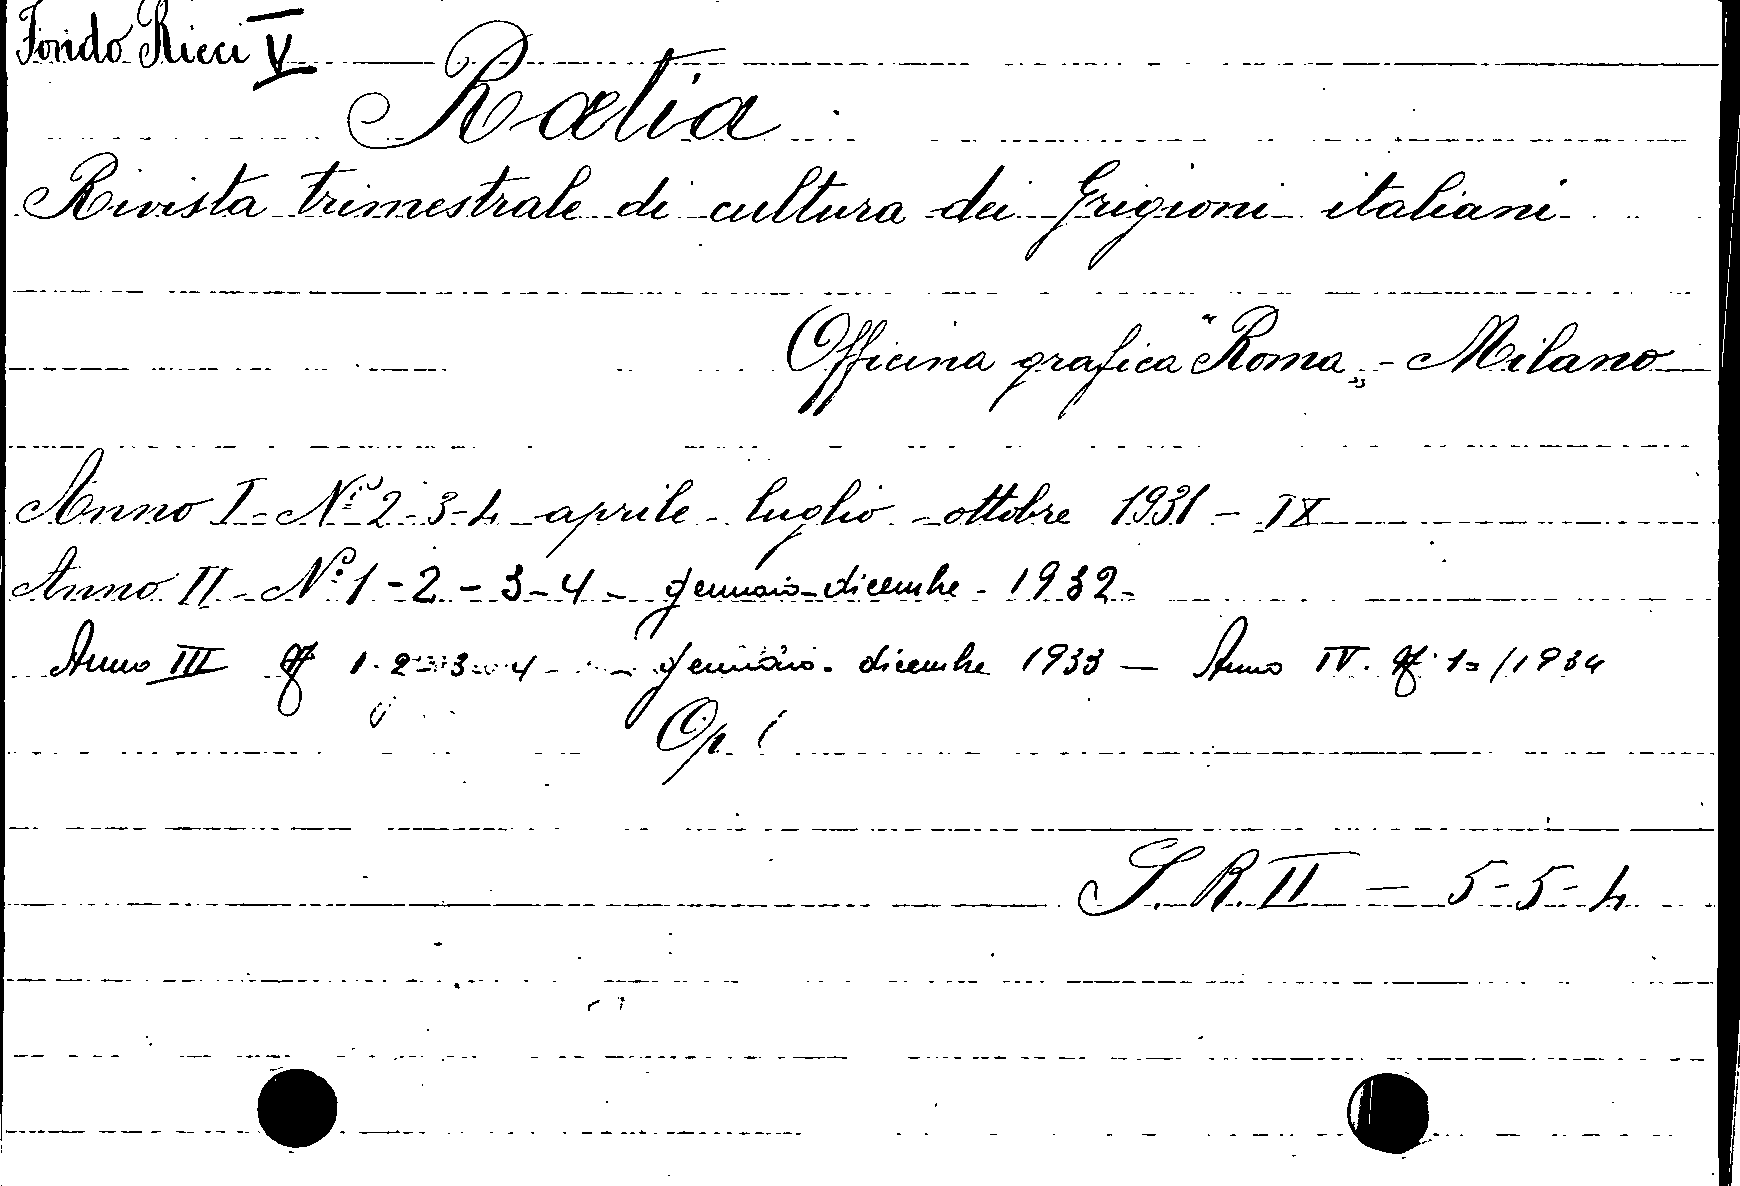 Fondo Ricci V
Rætia
Rivista trimestrale di cultura dei Grigioni italiani
Officina grafica "Roma„ - Milano
Anno I - Ni 2-3-4 aprile - luglio - ottobre 1931 - IX
Anno II - No 1-2-3-4 - gennaio-dicembre - 1932-
Anno III ff 1-2-3-4 - gennaio - dicembre 1933 — Anno IV. ff. 1= /1934
Op. (
S. R. II — 5-5-4